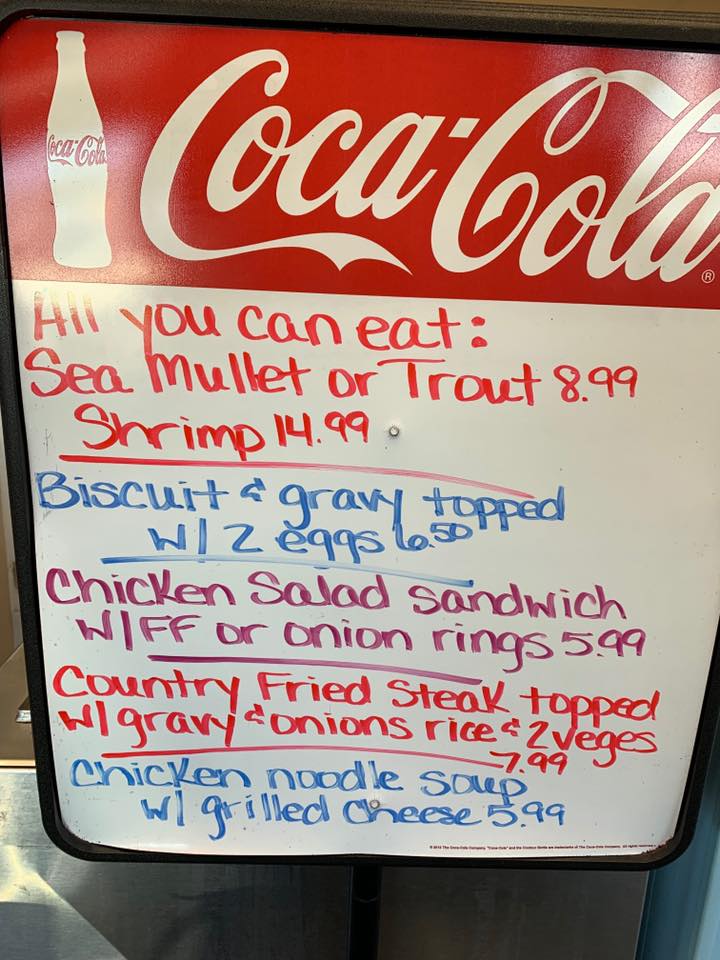 Coca-Cola
Coca-Cola®
All you can eat:
Sea Mullet or Trout 8.99
Shrimp 14.99
Biscuit & gravy topped
w/ 2 eggs 6.50
Chicken Salad sandwich
w/FF or onion rings 5.99
Country Fried Steak topped
w/ gravy & onions rice & 2 veges
7.99
Chicken noodle soup
w/ grilled cheese 5.99